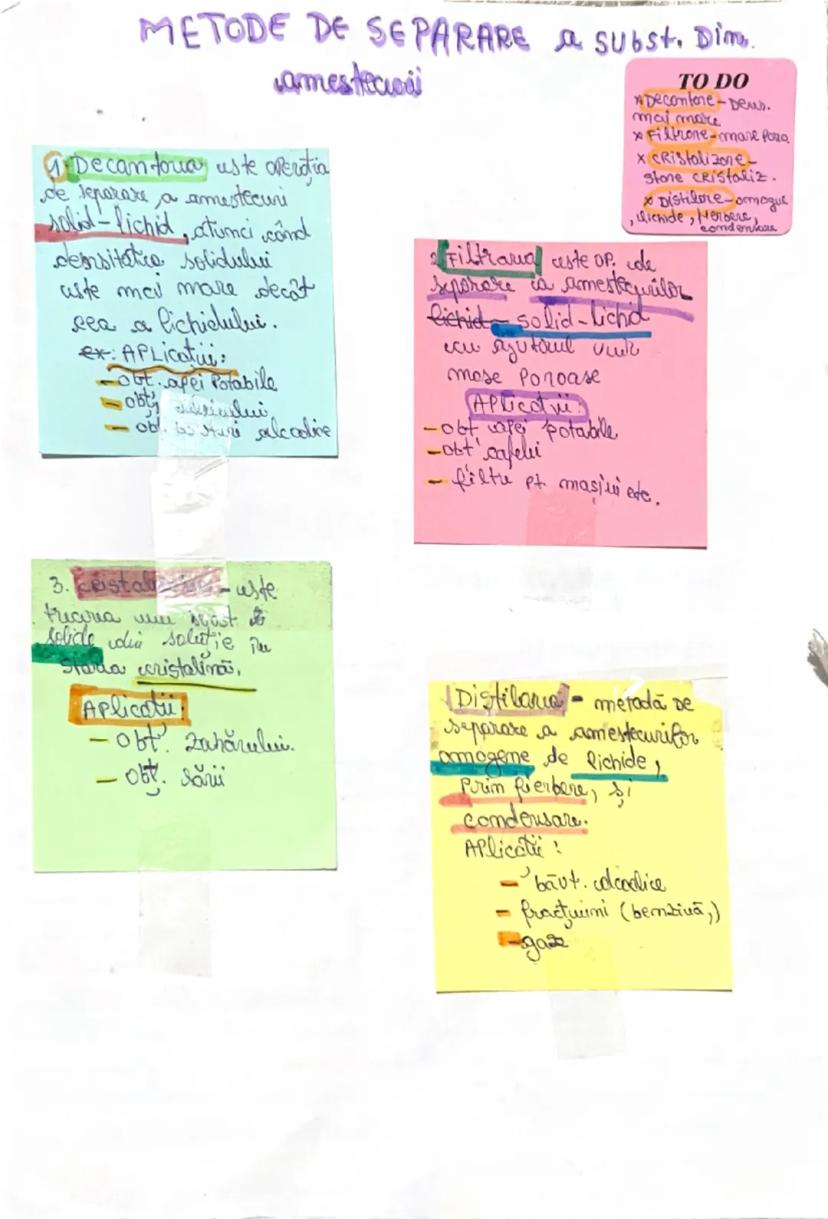 METODE DE SEPARARE a subst. Din
amestecuri
TO DO
* Decantare - Dens.
mai mare
* Filtrare - mase Poro.
* CRistalizare -
stare CRistaliz.
* Distilare - omogene
, lichide, fierbere,
condensare
1. Decantarea este operația
de separare a amestecuri
solid-lichid, atunci când
densitatea solidului
este mai mare decât
cea a lichidului.
ex: APlicații:
- obț. apei Potabile
- obț.
- obț. alcoolice
2. Filtrarea este OP. de
separare a amestecurilor
lichid- solid-lichid
cu ajutorul unor
mase Poroase
APlicații:
- obț apei potabile
- obț cafelei
- filtre pt. mașini etc.
3. - este
trecerea unei subst
solide din soluție în
starea cristalină.
APlicații:
- obț. zahărului.
- obț. sării
Distilarea - metodă de
separare a amestecurilor
omogene de lichide,
Prin fierbere, și
condensare.
APlicații:
- băut. alcoolice
- fracțiuni (benzină,)
- gaze